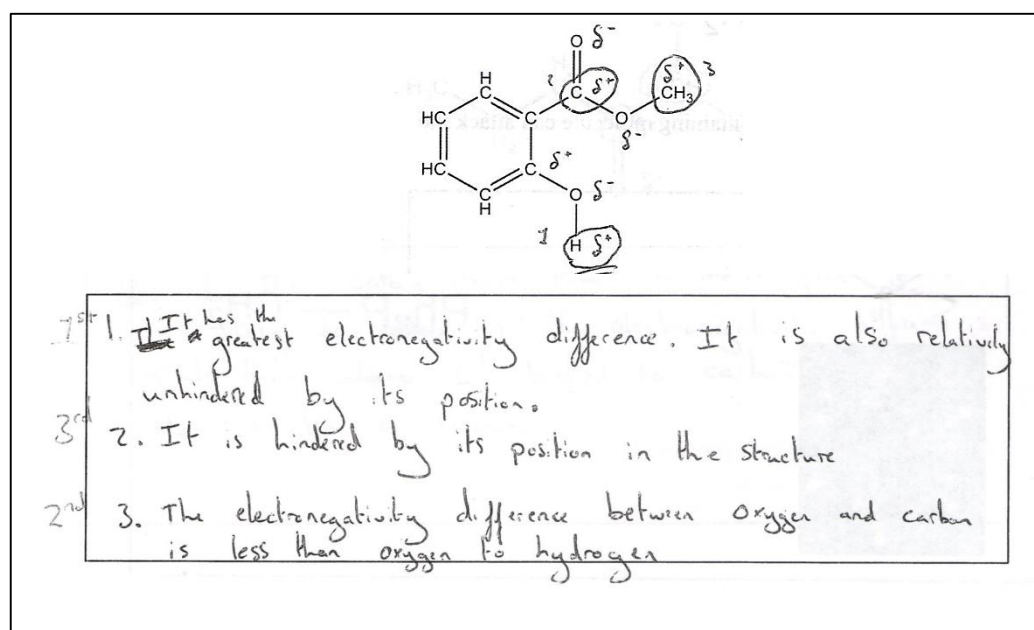 O δ-
H
C
2
C δ+
δ+ 3
CH3
HC
C
O
δ-
HC
C δ+
C
H
O δ-
1
H δ+
1st 1. It has the greatest electronegativity difference. It is also relatively
unhindered by its position.
3rd 2. It is hindered by its position in the structure
2nd 3. The electronegativity difference between oxygen and carbon
is less than oxygen to hydrogen